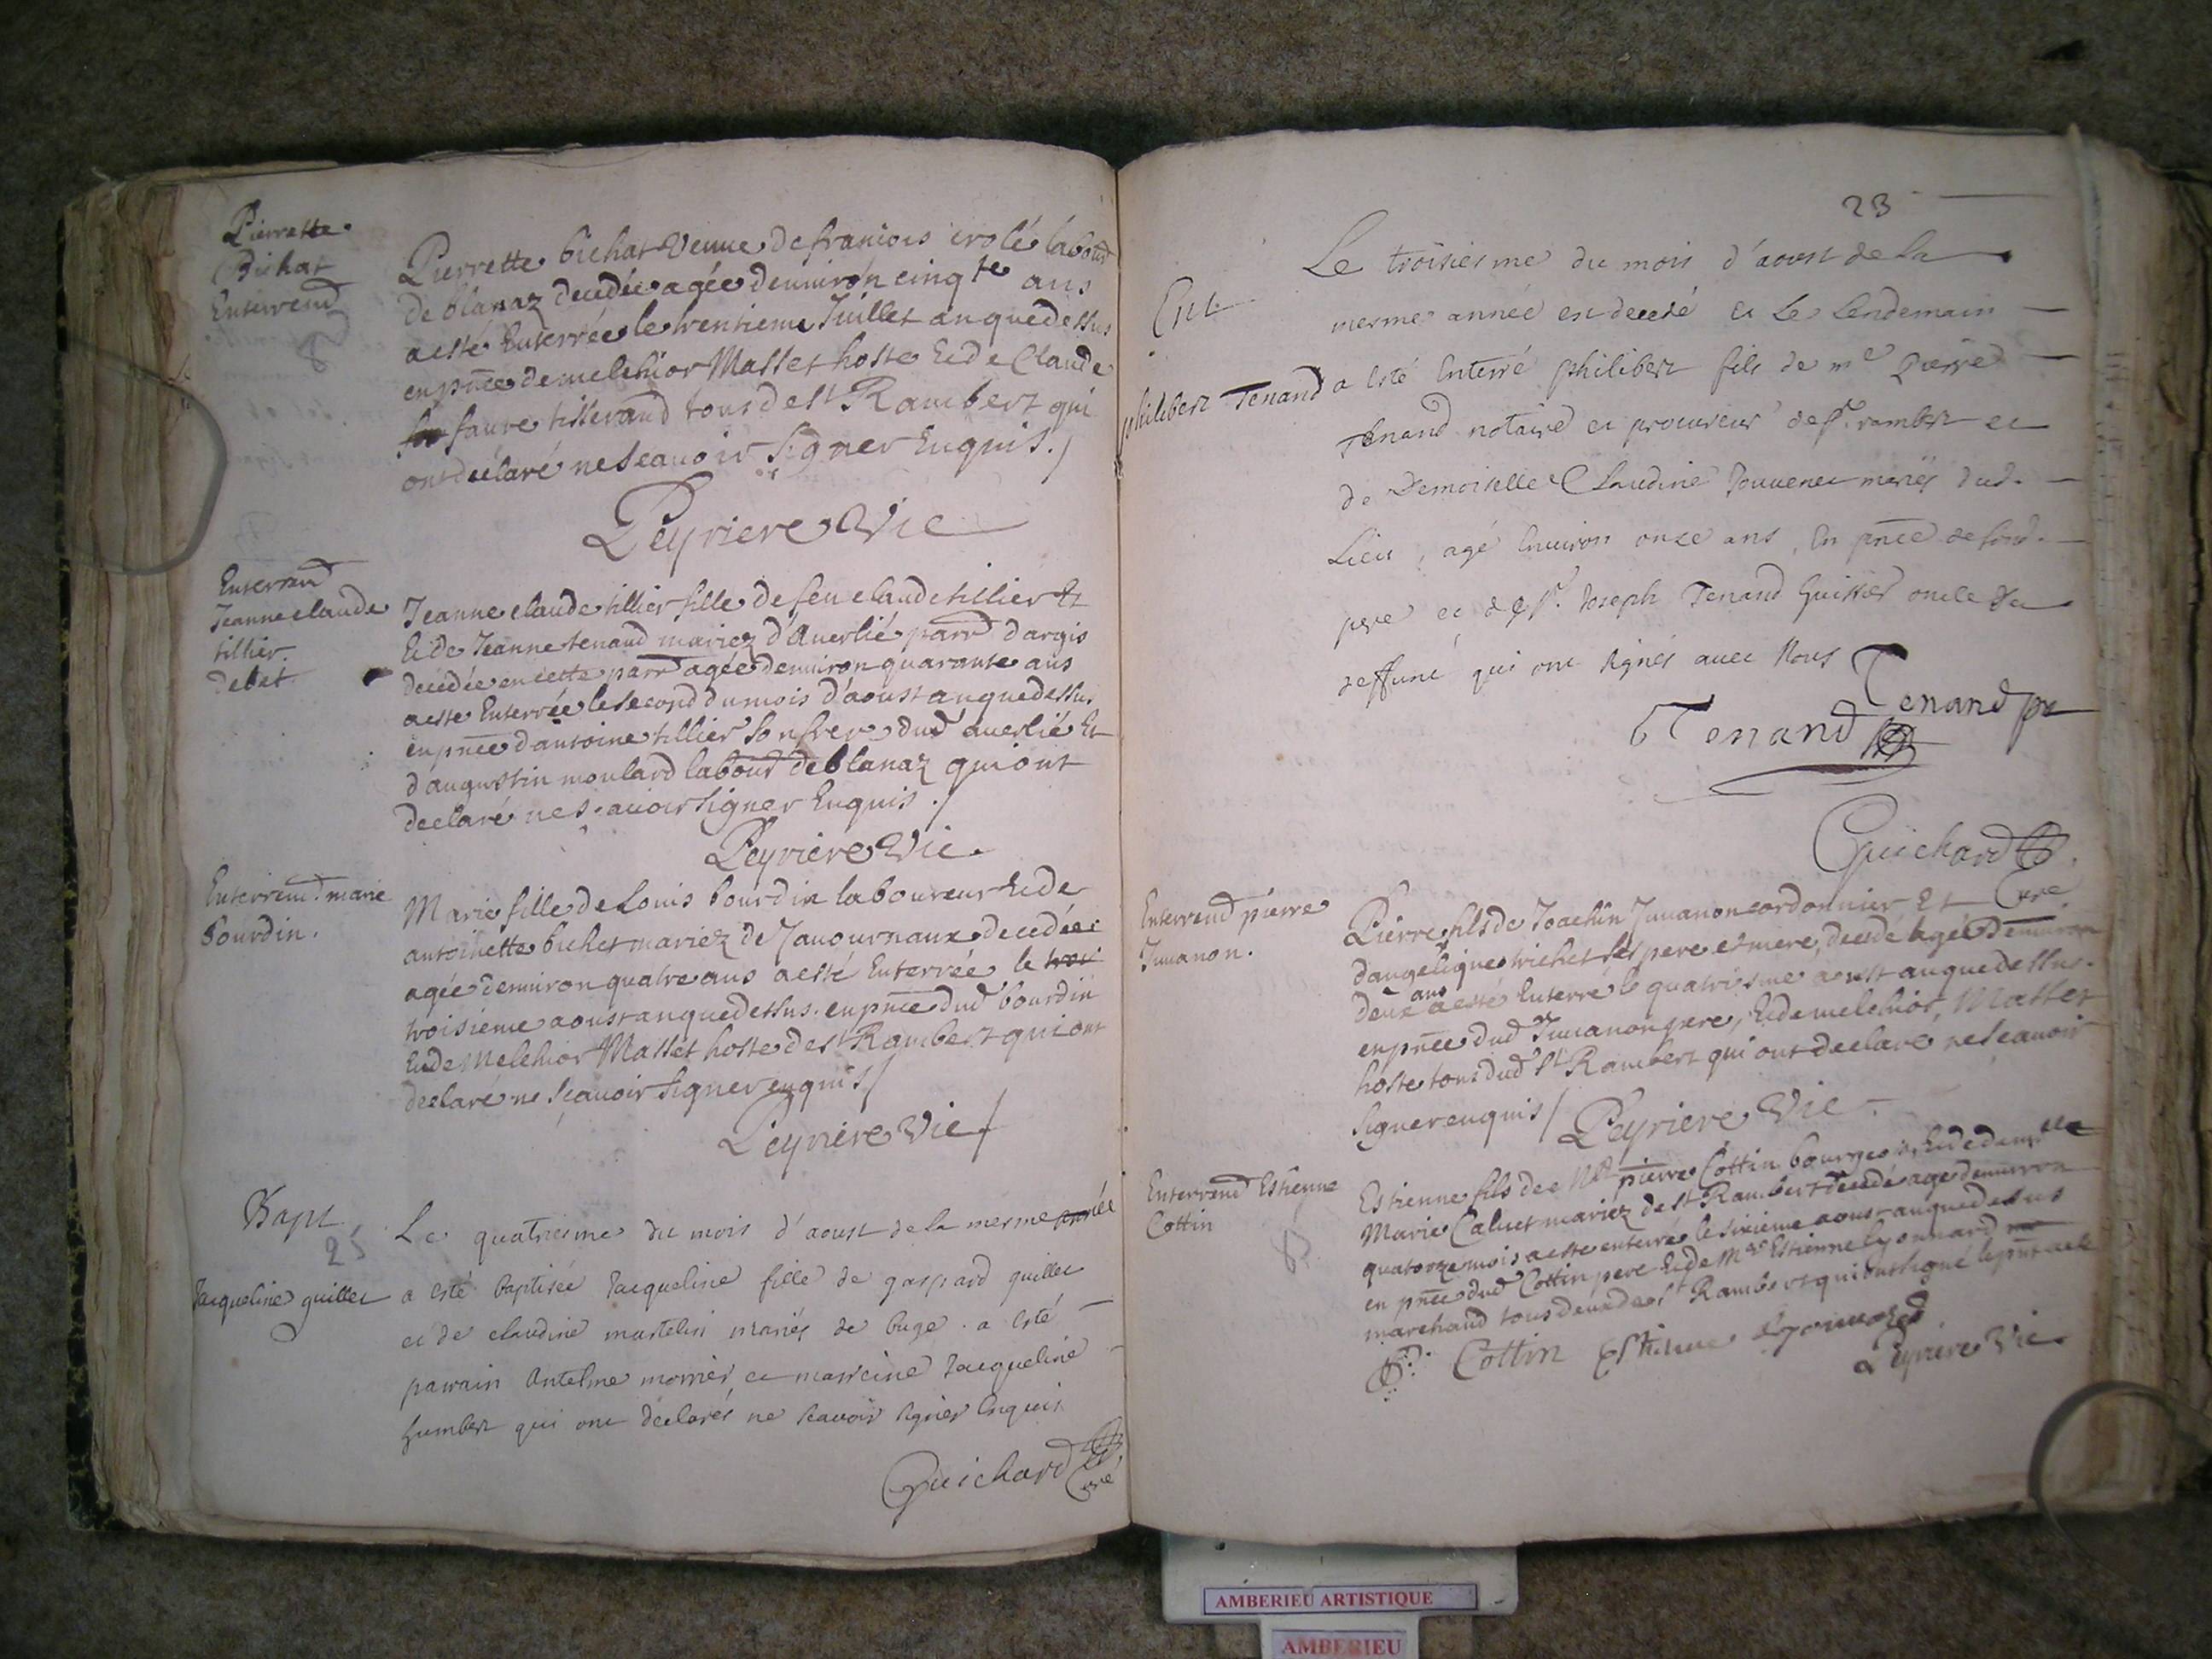 Pierrette
Bichat
Enterremt
8
Pierrette bichat Veuue de franiois crolé labour
de blanaz decedée agée denuiron cinqte ans
a esté Enterrée le trentieme Juillet an que dessus
en pnce de melchior Masset hoste Et de Claude
faure tisserand tous de st Rambert qui
ont declaré ne Scauoir Signer Enquis./
Peyriere Vic
Enterremt
Jeanne claude
tillier
debet
Jeanne claude tillier fille de feu claude tillier Et
Et de Jeanne tenand mariez d'Auerlié parr d'argis
decedée en cette parr agée denuiron quarante ans
a este Enterrée le second du mois d'aoust an que dessus
en pnce d'antoine tillier son frere dud auerlié Et
d'augustin moulard labour de blanaz qui ont
declaré ne scauoir signer Enquis ./
Peyriere Vic.
Enterremt. marie
bourdin.
Marie fille de Louis bourdin laboureur Et de
antoinette bichet mariez de Jauournaux decedée
agée denuiron quatre ans a esté Enterrée le troi
troisieme aoust an que dessus. en pnce dud bourdin
Et de Melchior Masset hoste de st Rambert qui ont
declaré ne sçauoir signer enquis/
Peyriere Vic/
Bapt
25
Jacqueline guillet
Le quatriesme du mois d'aoust de la mesme année
a esté baptisée Jacqueline fille de gaspard guillet
et de claudine mustelin mariés de buge. a esté
parrain Antelme monier et marreine Jacqueline
humbert qui ont declarés ne scauoir signer enquis
Guichard
Curé
23
Ent
philibert Tenand
Le troisiesme du mois d'aoust de la
mesme année est decedé et le lendemain
a esté enterré philibert fils de me pierre
Tenand notaire et procureur de st. rambert et
de Demoiselle Claudine Jouuenet mariés dud.
Lieu, agé enuiron onze ans, en pnce de sond.
pere et de sr. Joseph Tenand huissier oncle du
deffunt qui ont signés auec Nous
Tenand pr
Tenand
Guichard
Curé
Enterremt pierre
Juuanon.
Pierre fils de Joachin Juuanon cordonnier Et
d'angelique trichet ses pere et mere, decedé agée denuiron
deux ans a esté Enterré le quatriesme aoust an que dessus.
en pnce dud Juuanon pere, Et de melchior Masset
hoste tous dud st Rambert qui ont declaré ne scauoir
signer enquis / Peyriere Vic
Enterremt Estienne
Cottin
8
Estienne fils de Mr pierre Cottin bourgeois, Et de damlle
Marie Caluet mariez de st Rambert decedé agé denuiron
quatorze mois a este enterré le sixieme aoust an que dessus
en pnce dud Cottin pere Et de Mre Estienne Lyonnard
marchand tous deux de st Rambert qui ont signé le pnt acte
Cottin Estienne Lyonnard
Peyriere Vic
AMBERIEU ARTISTIQUE
AMBERIEU